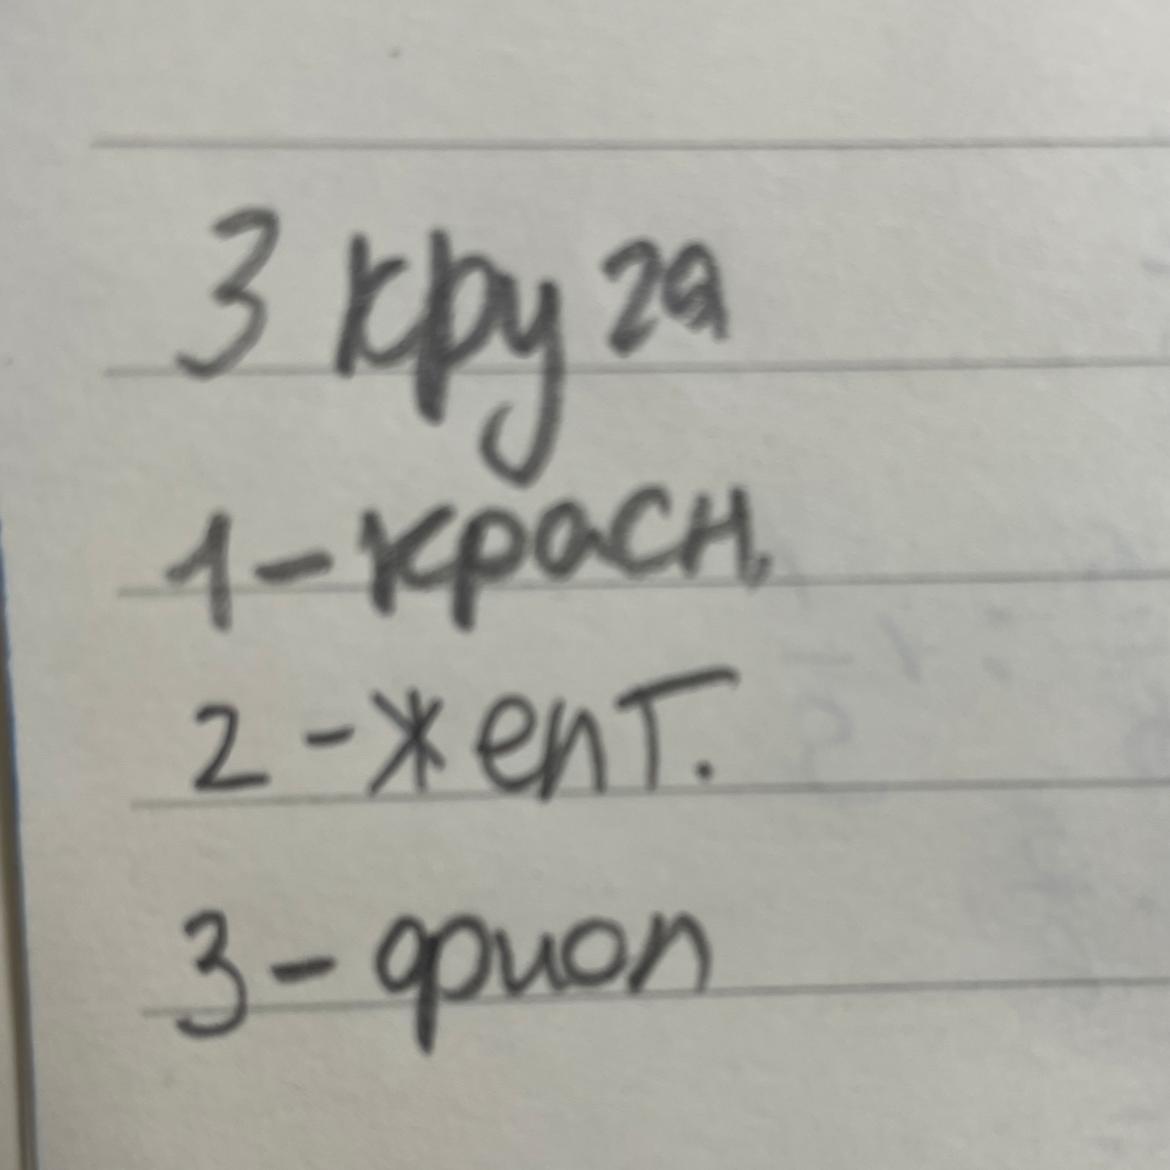 3 круга
1-красн.
2-желт.
3-фиол